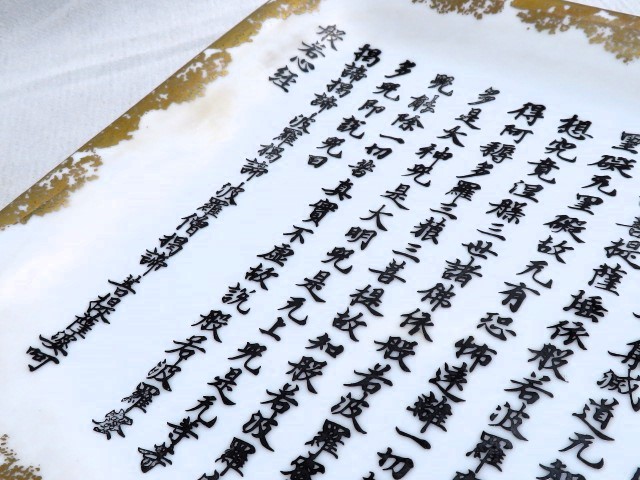 滅道无智
菩提薩埵依般若波羅
罣礙无罣礙故无有恐怖遠離一切
想究竟涅槃三世諸佛依般若波羅
得阿耨多羅三藐三菩提故知般若波羅蜜
多是大神咒是大明咒是无上咒是无等等
咒能除一切苦真實不虛故説般若波羅蜜
多咒即説咒曰
揭諦揭諦波羅揭諦波羅僧揭諦菩提薩婆訶
般若心経